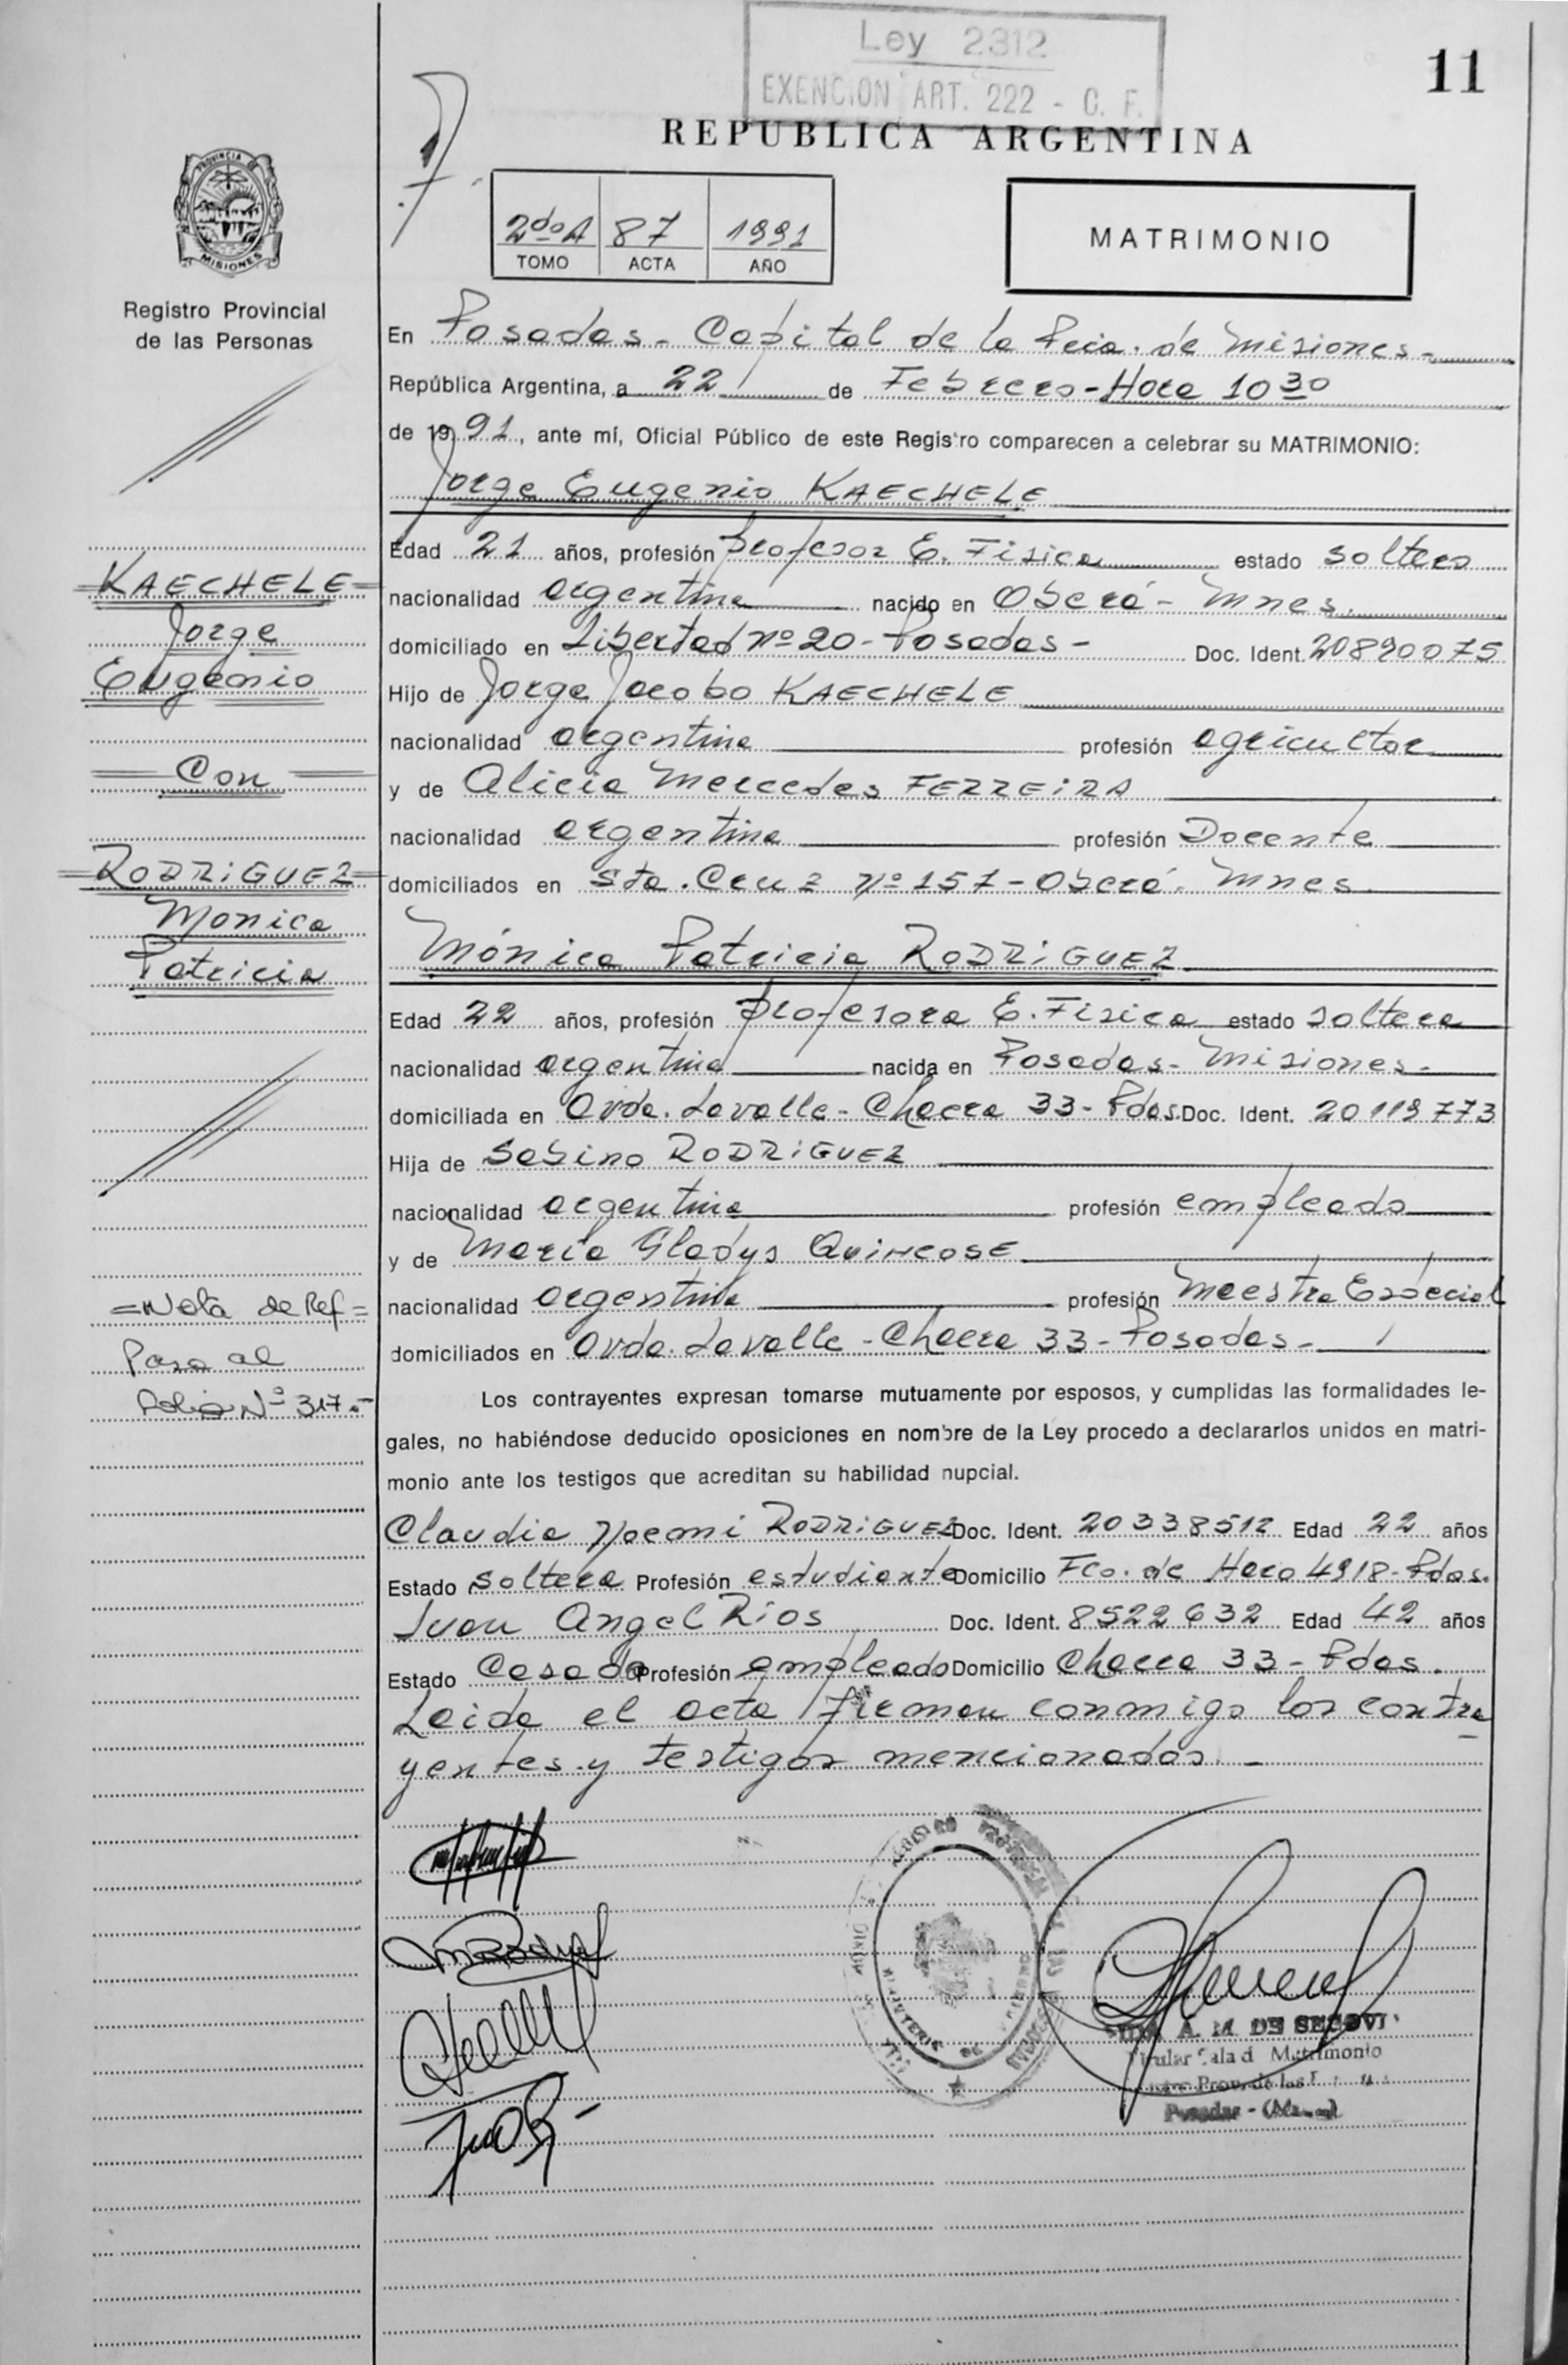 Ley 2312
EXENCION ART. 222 - C. F.
11
REPUBLICA ARGENTINA
PROVINCIA DE
MISIONES
Registro Provincial
de las Personas
2do A 87 1991
TOMO ACTA AÑO
MATRIMONIO
En Posadas - Capital de la Pcia. de Misiones -
República Argentina, a 22 de Febrero - Hora 10 30
de 19 91, ante mí, Oficial Público de este Registro comparecen a celebrar su MATRIMONIO:
Jorge Eugenio KAECHELE
Edad 21 años, profesión profesor E. Física estado soltero
nacionalidad argentina nacido en Oberá - Mnes.
domiciliado en Libertad nº 20 - Posadas - Doc. Ident. 20890075
Hijo de Jorge Jacobo KAECHELE
nacionalidad argentina profesión agricultor
y de Alicia Mercedes FERREIRA
nacionalidad argentina profesión Docente
domiciliados en Sta. Cruz nº 157 - Oberá. Mnes.
Mónica Patricia RODRIGUEZ
Edad 22 años, profesión profesora E. Física estado soltera
nacionalidad argentina nacida en Posadas - Misiones -
domiciliada en Avda. Lavalle - Chacra 33 - Pdas. Doc. Ident. 20119773
Hija de Sabino RODRIGUEZ
nacionalidad argentina profesión empleado
y de María Gladys QUINCOSE
nacionalidad argentina profesión Maestra Especial
domiciliados en Avda. Lavalle - Chacra 33 - Posadas -
Los contrayentes expresan tomarse mutuamente por esposos, y cumplidas las formalidades le-
gales, no habiéndose deducido oposiciones en nombre de la Ley procedo a declararlos unidos en matri-
monio ante los testigos que acreditan su habilidad nupcial.
Claudia Noemi RODRIGUEZ Doc. Ident. 20338512 Edad 22 años
Estado soltera Profesión estudiante Domicilio Fco. de Haro 4918 - Pdas.
Juan Angel Rios Doc. Ident. 8522632 Edad 42 años
Estado Casado Profesión empleado Domicilio Chacra 33 - Pdas.
Leida el acta firman conmigo los contra
yentes y testigos mencionados. -
KAECHELE
Jorge
Eugenio
Con
RODRIGUEZ
Monica
Patricia
= Nota de Ref =
Pasa al
Folio Nº 317.-
A. M. DE SEGOVI
Titular Sala d Matrimonio
Prov. de las
Posadas - (Mnes)